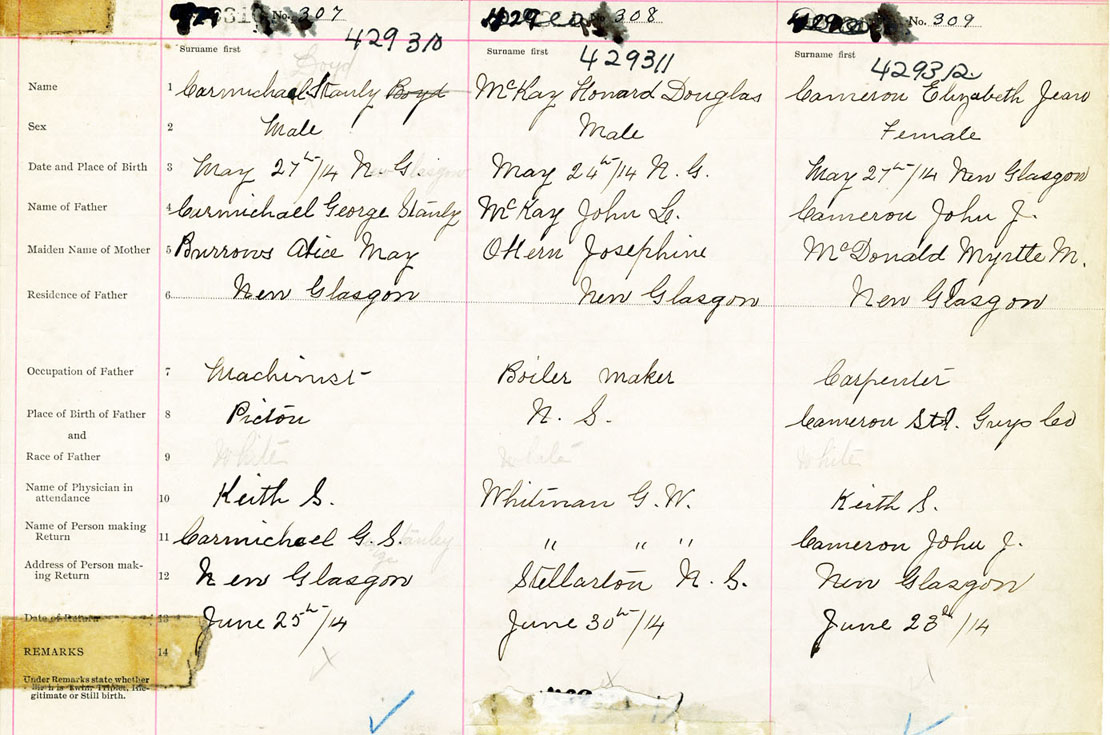 No. 307 No. 308 No. 309
429310 429311 429312
Surname first Surname first Surname first
Boyd
Name 1 Carmichael Stanly Boyd McKay Howard Douglas Cameron Elizabeth Jean
Sex 2 Male Male Female
Date and Place of Birth 3 May 27th/14 N. G. May 24th/14 N. G. May 27th/14 New Glasgow
Name of Father 4 Carmichael George Stanly McKay John L. Cameron John J.
Maiden Name of Mother 5 Burrows Alice May OHern Josephine McDonald Myrtle M.
Residence of Father 6 New Glasgow New Glasgow New Glasgow
Occupation of Father 7 Machinist Boiler maker Carpenter
Place of Birth of Father 8 Pictou N. S. Cameron Guys Co
and
Race of Father 9 White White White
Name of Physician in
attendance 10 Keith S. Whitman G. W. Keith S.
Name of Person making
Return 11 Carmichael G. S. " " " Cameron John J.
Address of Person mak-
ing Return 12 New Glasgow Stellarton N. S. New Glasgow
Date of Return 13 June 25th/14 June 30th/14 June 23th/14
REMARKS 14
Under Remarks state whether
Birth is Twin, Triplet, Ille-
gitimate or Still birth.